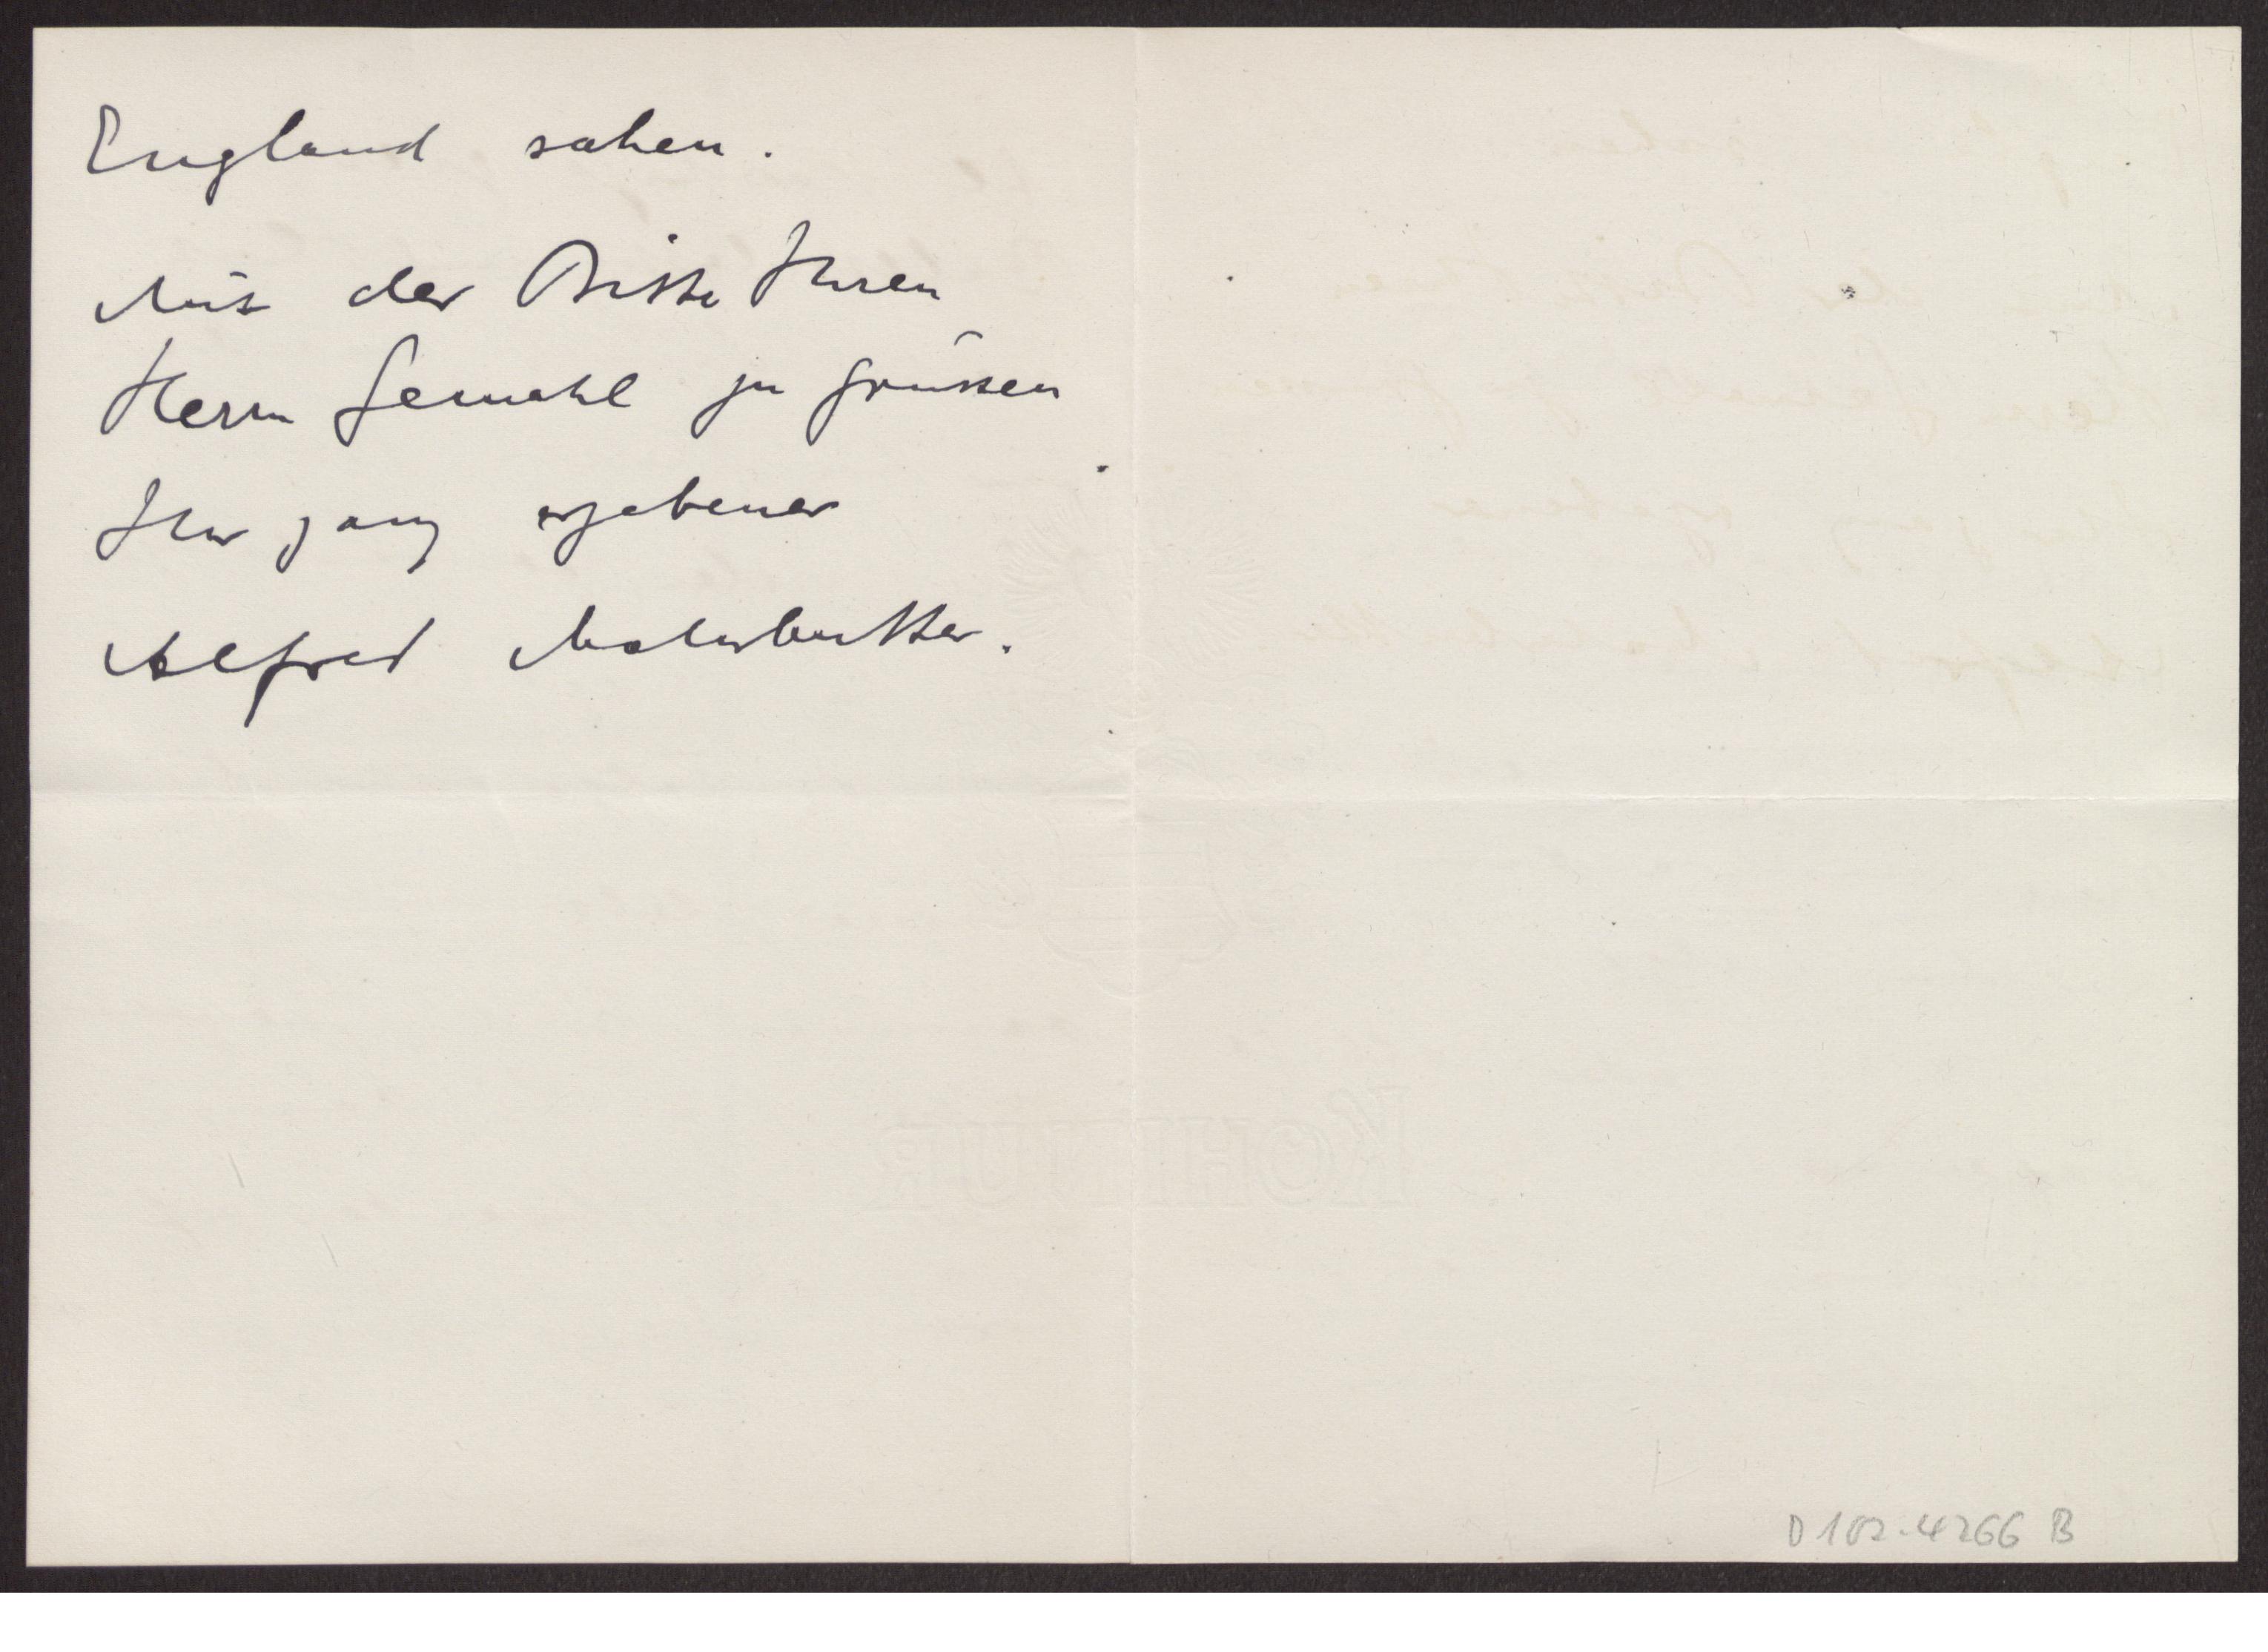 England sahen.
Mit der Bitte Ihren
Herrn Gemahl zu grüssen
Ihr ganz ergebener
Alfred
KOHINUR
D 102-4266 B